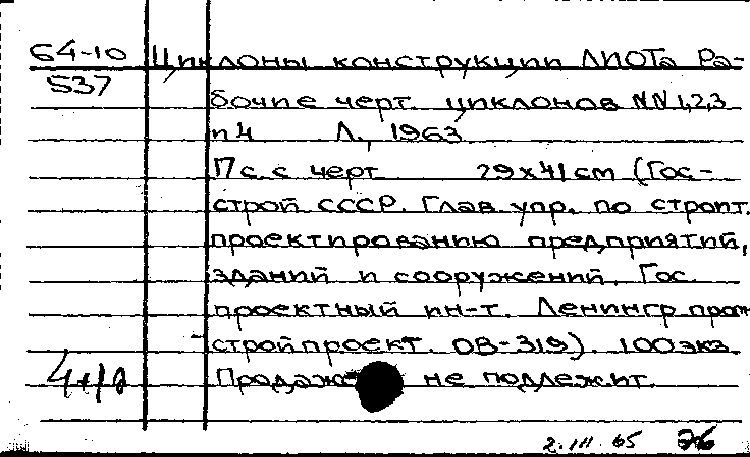 64-10
537
Циклоны конструкции ЛИОТа Ра-
бочие черт. циклонов NN 1,2,3
и 4 Л., 1963
П с. с черт. 29х41 см (Гос-
строй СССР. Глав. упр. по строит.
проектированию предприятий,
зданий и сооружений. Гос.
проектный ин-т. Ленингр.
стройпроект. ОВ-319). 100 экз.
Продаже не подлежит.
2.III.65